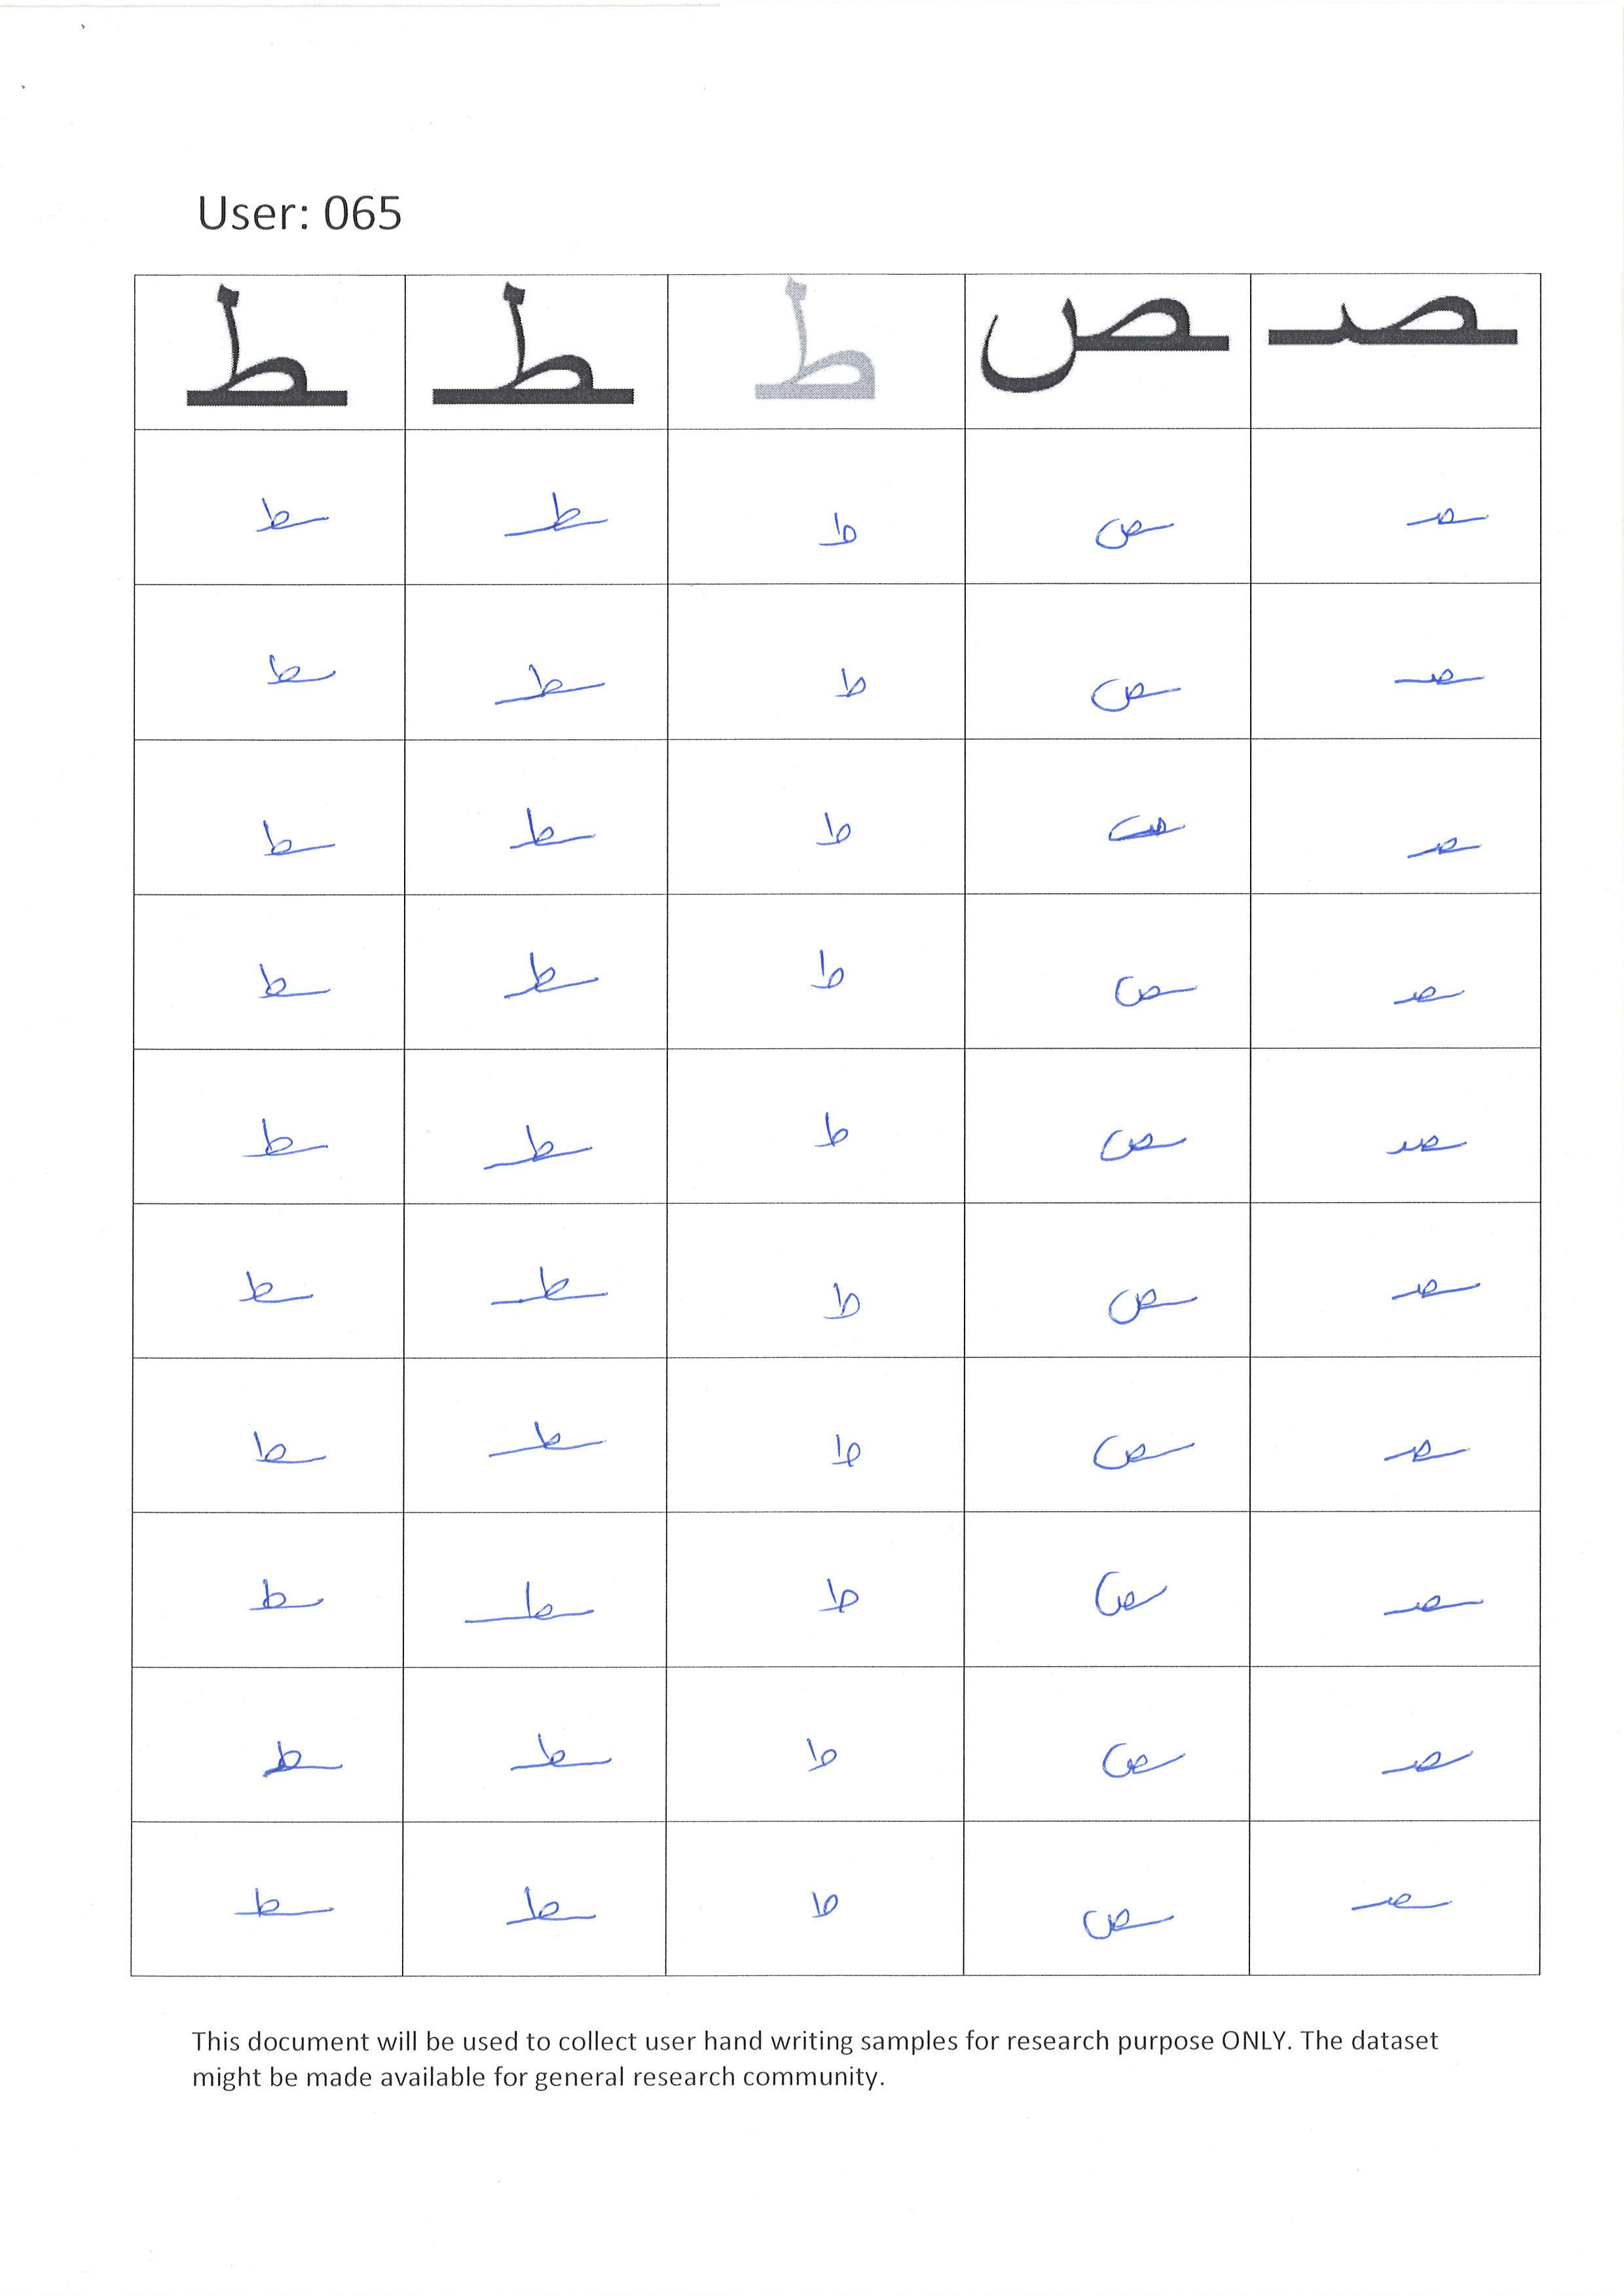 User: 065
ـط ـطـ ط ـص ـصـ
ـط ـطـ ط ـص ـصـ
ـط ـطـ ط ـص ـصـ
ـط ـطـ ط ـص ـصـ
ـط ـطـ ط ـص ـصـ
ـط ـطـ ط ـص ـصـ
ـط ـطـ ط ـص ـصـ
ـط ـطـ ط ـص ـصـ
ـط ـطـ ط ـص ـصـ
ـط ـطـ ط ـص ـصـ
ـط ـطـ ط ـص ـصـ
This document will be used to collect user hand writing samples for research purpose ONLY. The dataset
might be made available for general research community.